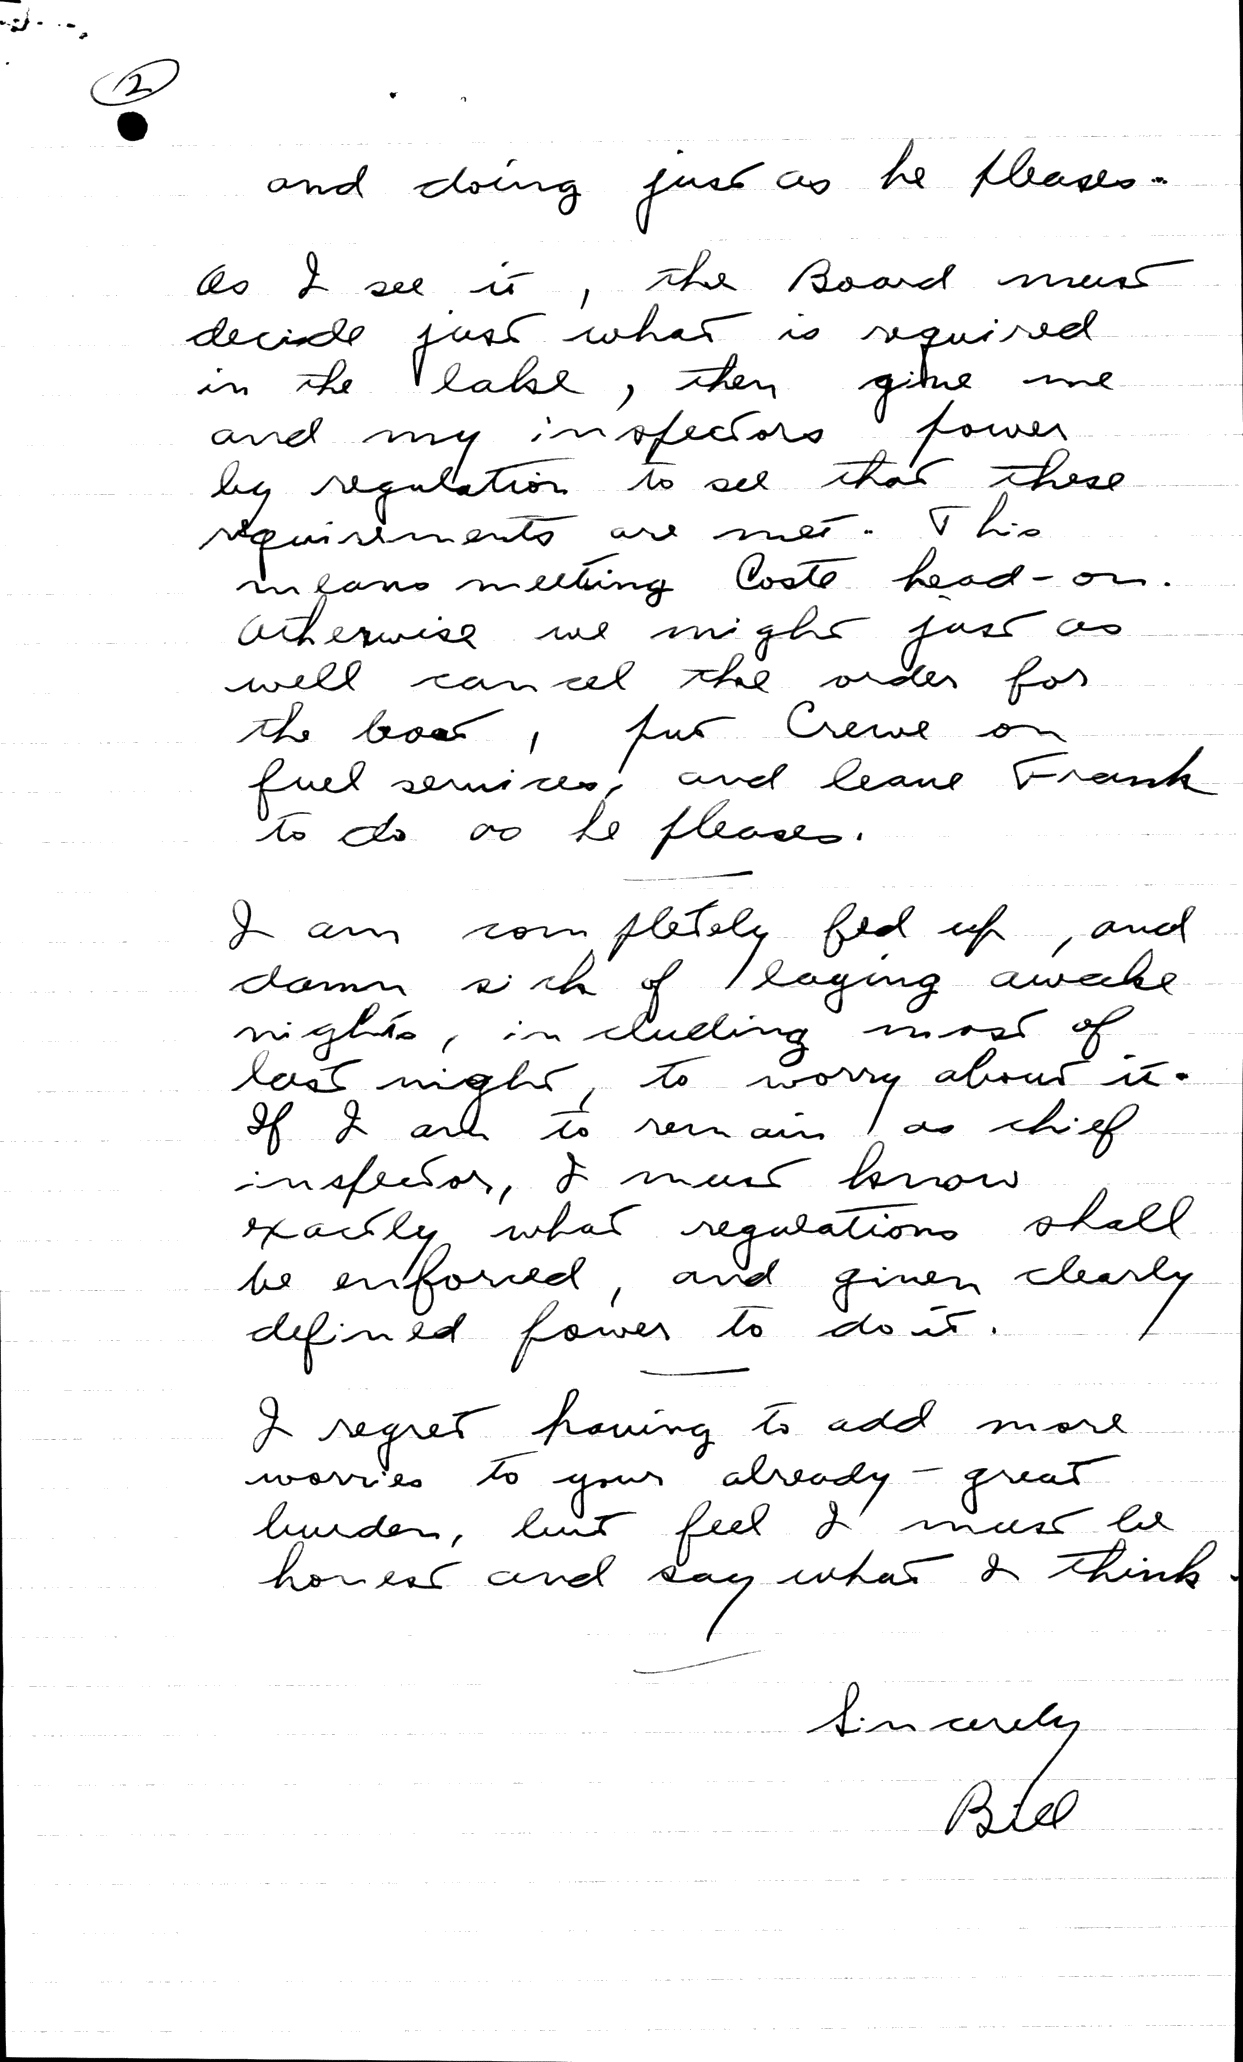 2
and doing just as he pleases.
As I see it, the Board must
decide just what is required
in the lake, then give me
and my inspectors power
by regulation to see that these
requirements are met. This
means meeting Coste head-on.
Otherwise we might just as
well cancel the order for
the boat, put Crewe on
fuel services, and leave Frank
to do as he pleases.
I am completely fed up, and
damn sick of laying awake
nights, including most of
last night, to worry about it.
If I am to remain as chief
inspector, I must know
exactly what regulations shall
be enforced, and given clearly
defined power to do it.
I regret having to add more
worries to your already-great
burden, but feel I must be
honest and say what I think.
Sincerely
Bill